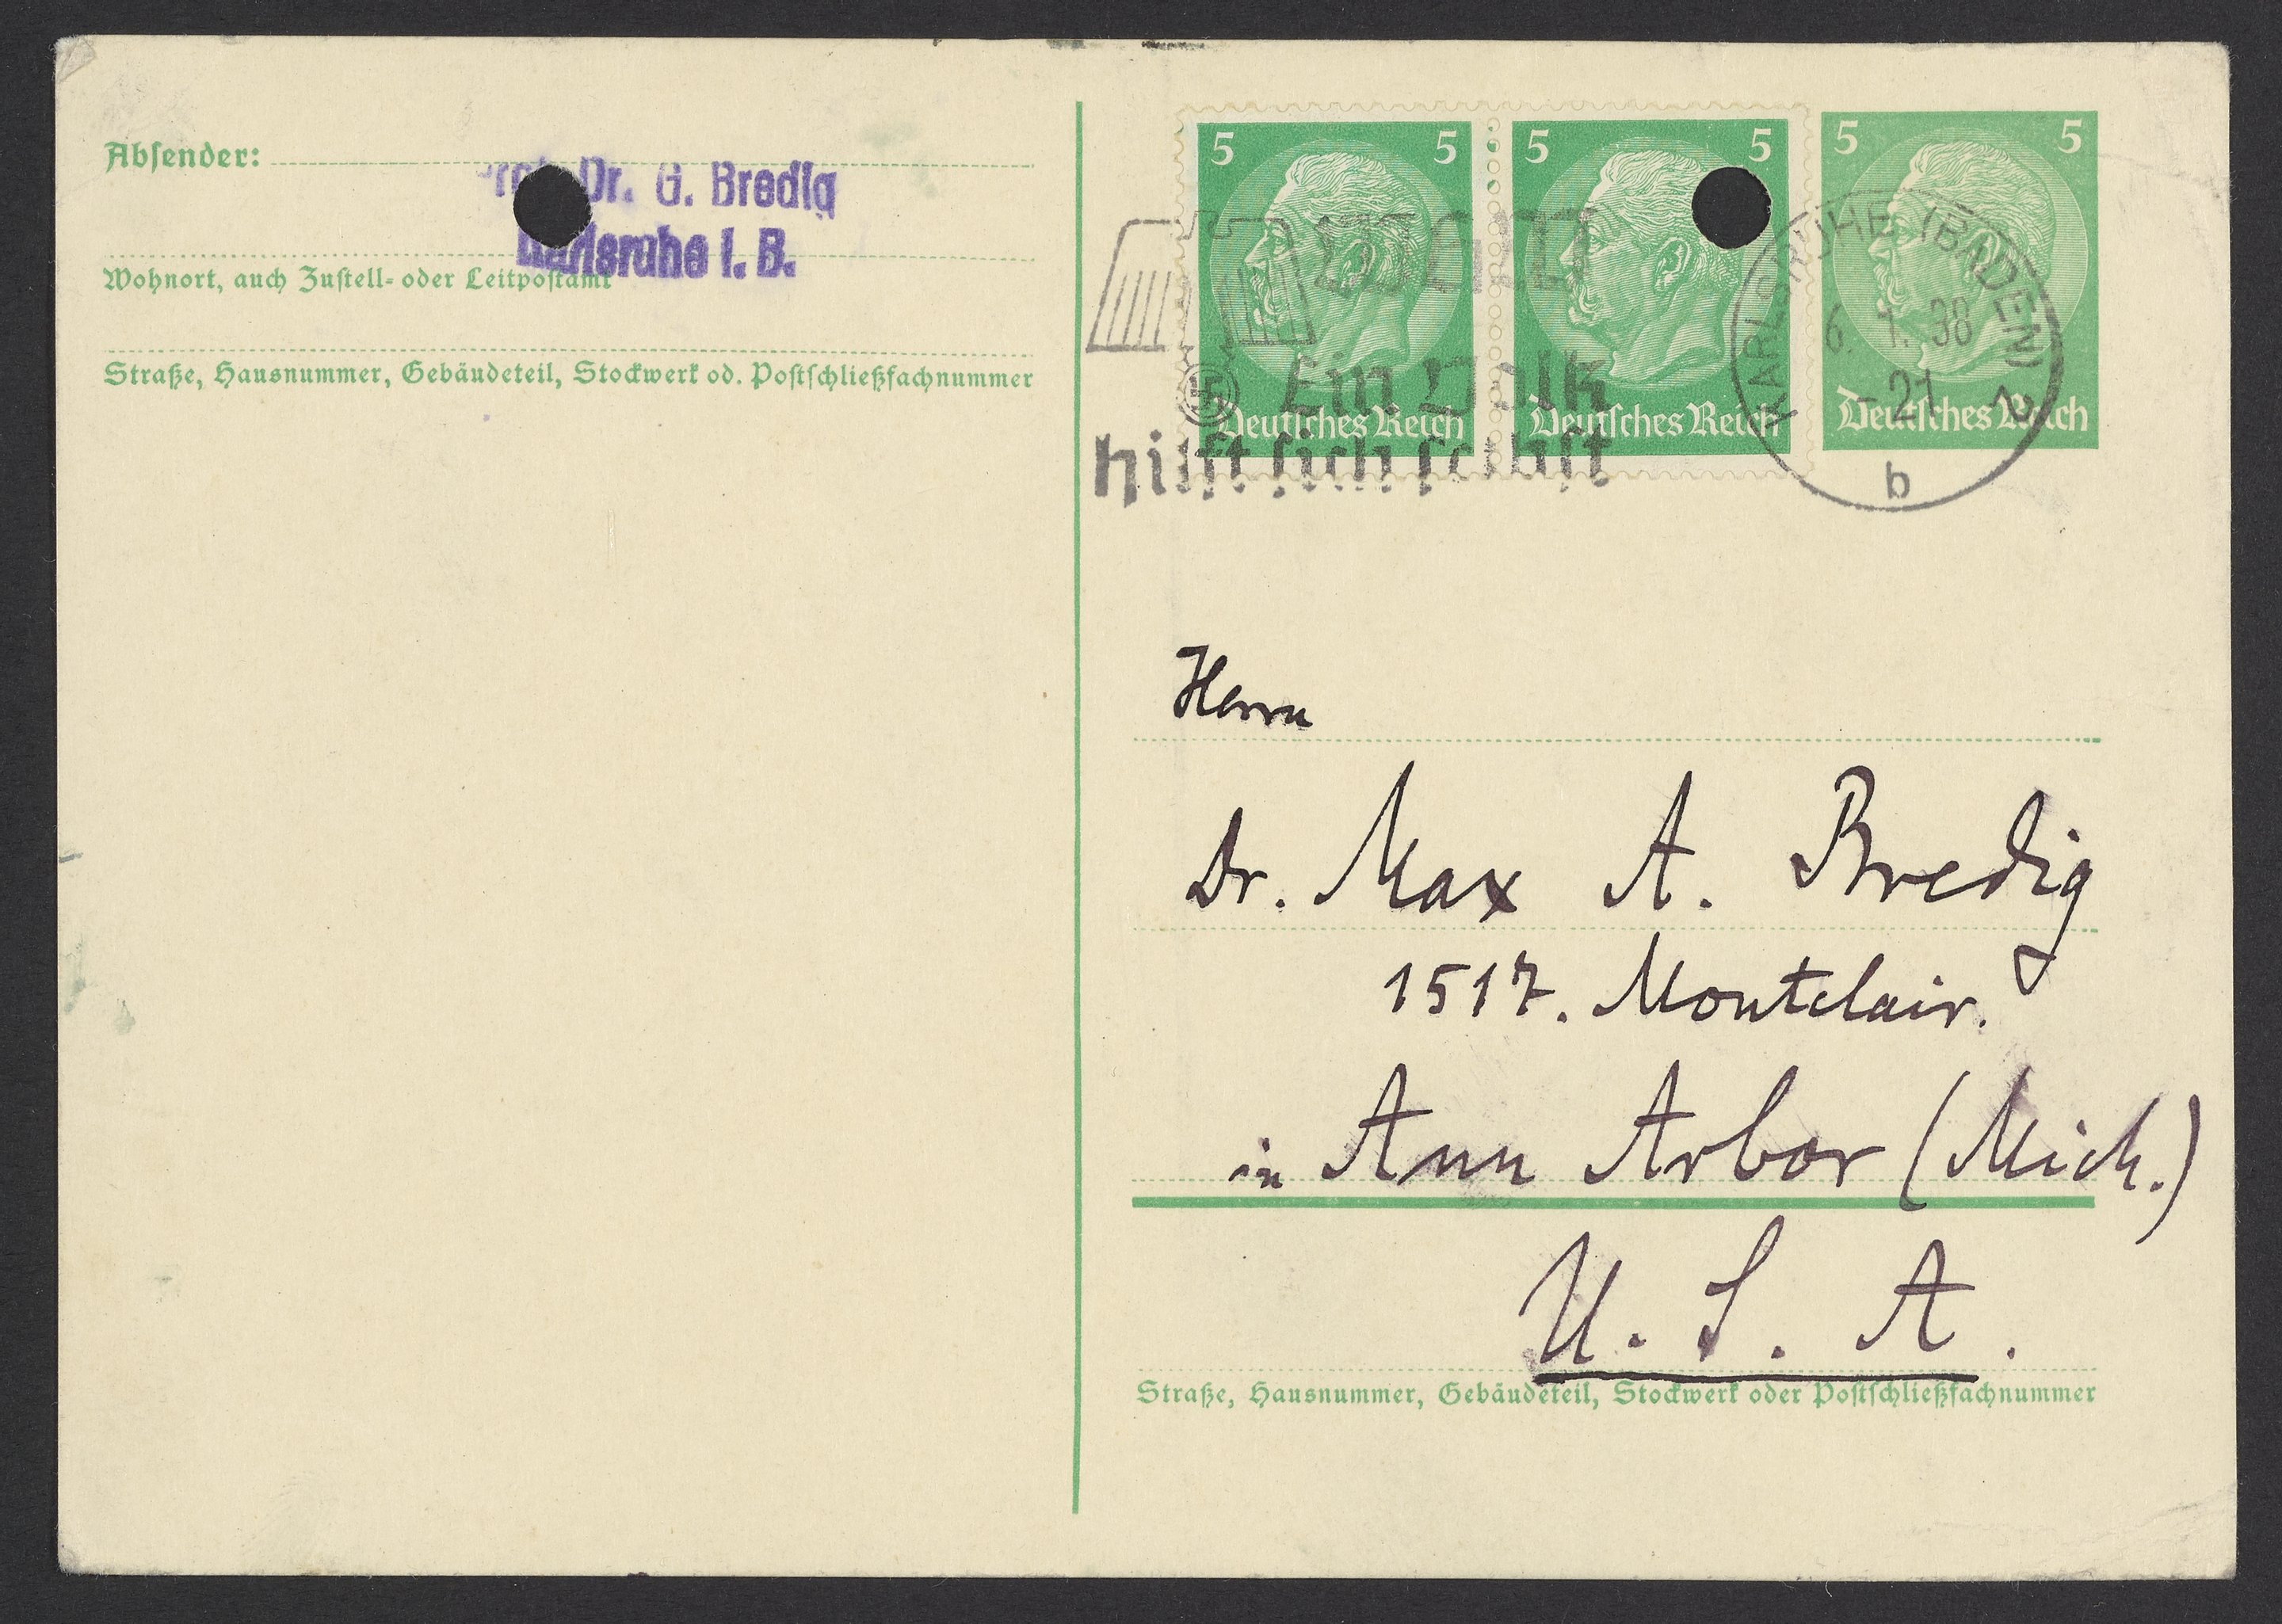 Absender:
Dr. G. Bredig
Karlsruhe i. B.
Wohnort, auch Zustell- oder Leitpostamt
Straße, Hausnummer, Gebäudeteil, Stockwerk od. Postschließfachnummer
5 5 5 5 5 5
Deutsches Reich Deutsches Reich Deutsches Reich
Ein Volk
hilft sich selbst
KARLSRUHE (BADEN) 2
6. 1. 38
-21
b
Herrn
Dr. Max A. Bredig
1517. Montclair.
in Ann Arbor (Mich.)
U. S. A.
Straße, Hausnummer, Gebäudeteil, Stockwerk oder Postschließfachnummer